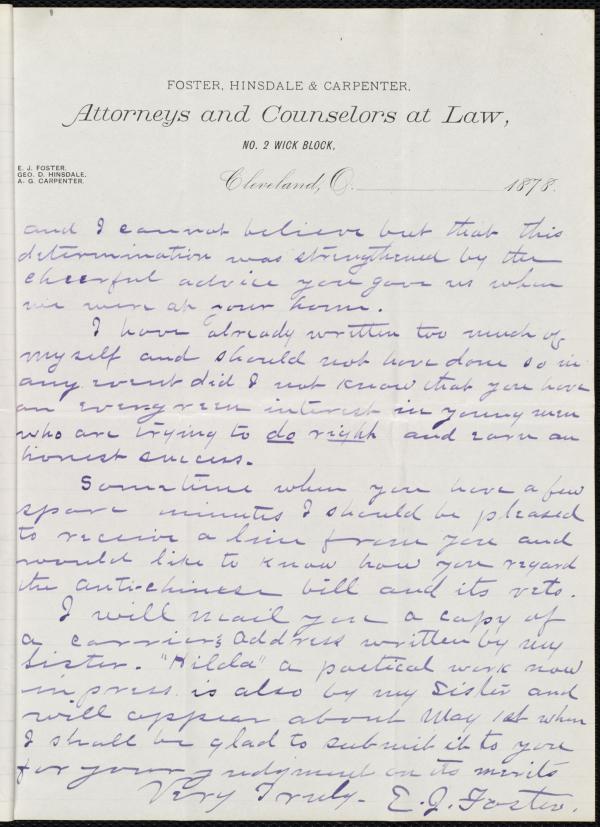 FOSTER, HINSDALE & CARPENTER,
Attorneys and Counselors at Law,
NO. 2 WICK BLOCK,
E. J. FOSTER.
GEO. D. HINSDALE.
A. G. CARPENTER.
Cleveland, O. 1878.
and I cannot believe but that this
determination was strengthened by the
cheerful advice you gave us when
we were at your home.
I have already written too much of
myself and should not have done so in
any event did I not know that you have
an evergreen interest in young men
who are trying to do right and earn an
honest success.
Sometime when you have a few
spare minutes I should be pleased
to receive a line from you and
would like to know how you regard
the anti-chinese bill and its veto.
I will mail you a copy of
a carriers address written by my
Sister. "Hilda" a poetical work now
in press is also by my Sister and
will appear about May 1st when
I shall be glad to submit it to you
for your judgment on its merits
Very Truly- E. J. Foster.